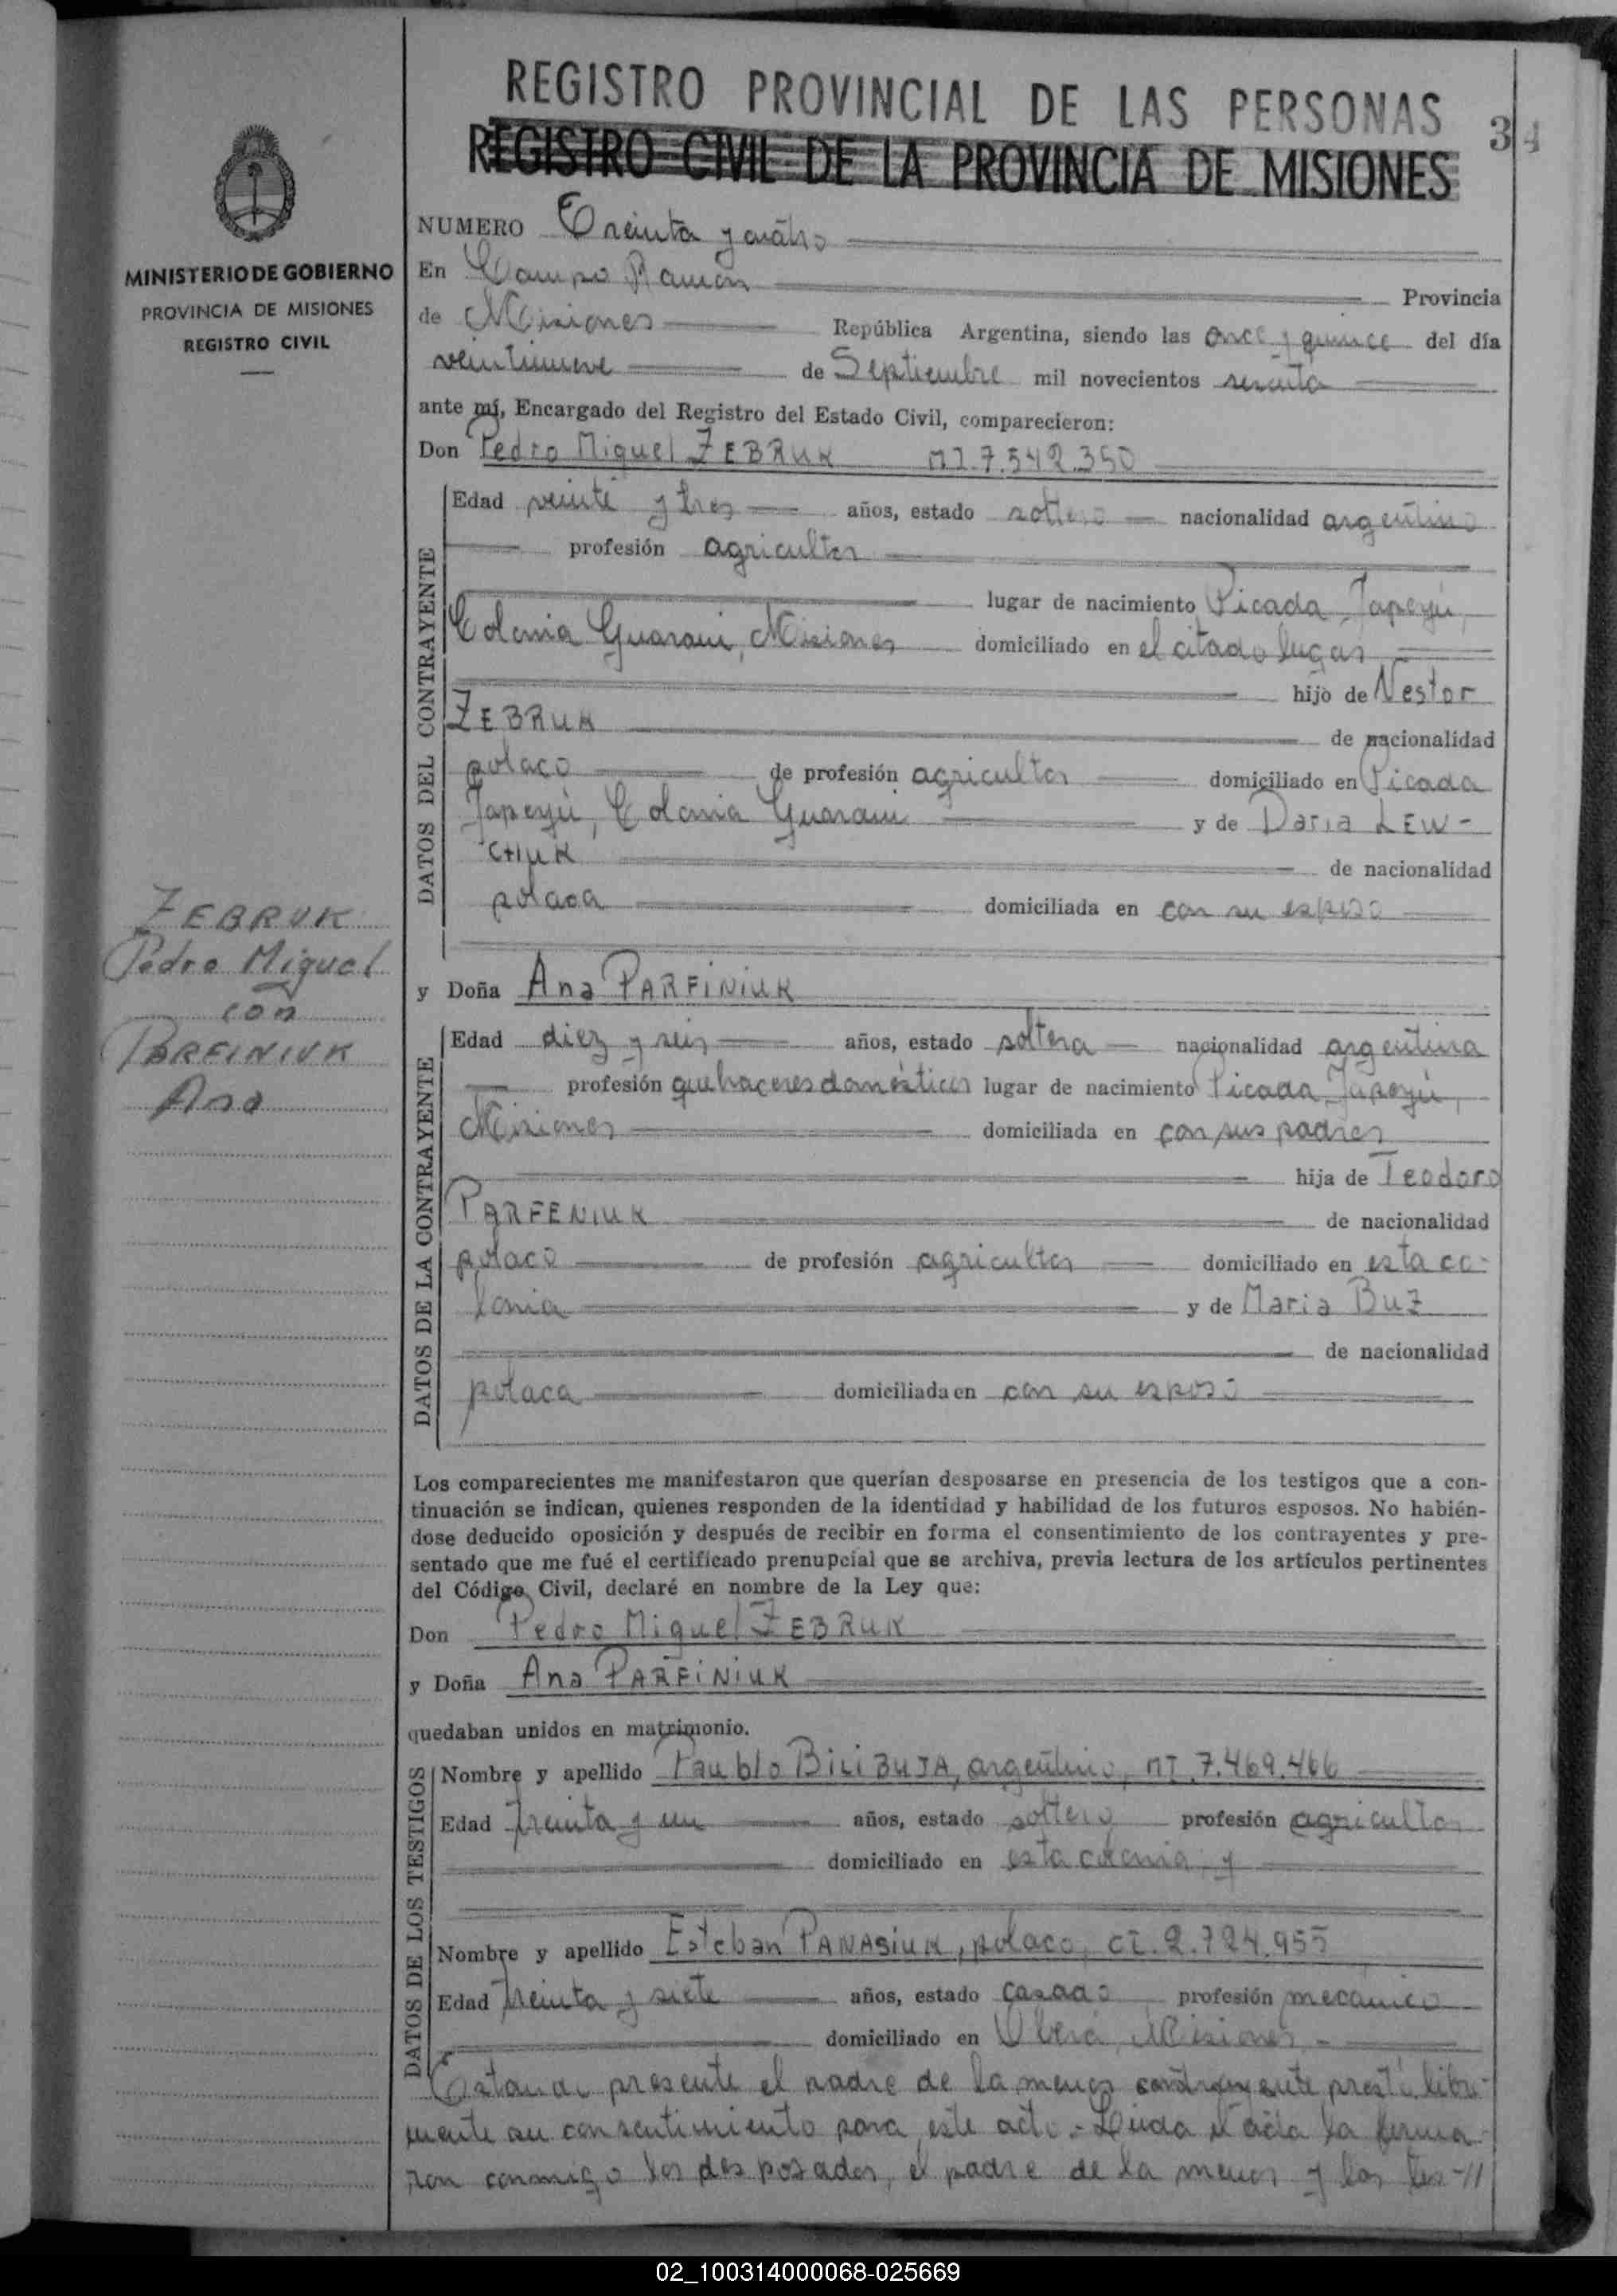 REGISTRO PROVINCIAL DE LAS PERSONAS
34
REGISTRO CIVIL DE LA PROVINCIA DE MISIONES
MINISTERIO DE GOBIERNO
PROVINCIA DE MISIONES
REGISTRO CIVIL
NUMERO Treinta y cuatro
En Campo Ramón Provincia
de Misiones República Argentina, siendo las once y quince del día
veintinueve de Septiembre mil novecientos sesenta
ante mí, Encargado del Registro del Estado Civil, comparecieron:
Don Pedro Miguel ZEBRUK MI.7.542.350
DATOS DEL CONTRAYENTE
Edad veinte y tres años, estado soltero nacionalidad argentino
profesión agricultor
lugar de nacimiento Picada Japeyú,
Colonia Guarani, Misiones domiciliado en el citado lugar
hijo de Nestor
ZEBRUK de nacionalidad
polaco de profesión agricultor domiciliado en Picada
Japeyú, Colonia Guarani y de Daria LEW-
CHUK de nacionalidad
polaca domiciliada en con su esposo
ZEBRUK
Pedro Miguel
con
PARFINIUK
Ana
y Doña Ana PARFINIUK
DATOS DE LA CONTRAYENTE
Edad diez y seis años, estado soltera nacionalidad argentina
profesión quehaceres domésticos lugar de nacimiento Picada Japeyú,
Misiones domiciliada en con sus padres
hija de Teodoro
PARFENIUK de nacionalidad
polaco de profesión agricultor domiciliado en esta co-
lonia y de Maria BUZ
de nacionalidad
polaca domiciliada en con su esposo
Los comparecientes me manifestaron que querían desposarse en presencia de los testigos que a con-
tinuación se indican, quienes responden de la identidad y habilidad de los futuros esposos. No habién-
dose deducido oposición y después de recibir en forma el consentimiento de los contrayentes y pre-
sentado que me fué el certificado prenupcial que se archiva, previa lectura de los artículos pertinentes
del Código Civil, declaré en nombre de la Ley que:
Don Pedro Miguel ZEBRUK
y Doña Ana PARFINIUK
quedaban unidos en matrimonio.
DATOS DE LOS TESTIGOS
Nombre y apellido Paublo BILIBUJA, argentino, MI.7.469.466
Edad treinta y un años, estado soltero profesión agricultor
domiciliado en esta colonia y
Nombre y apellido Esteban PANASIUK, polaco, CI.2.724.955
Edad treinta y siete años, estado casado profesión mecánico
domiciliado en Oberá, Misiones.-
Estando presente el padre de la menor contrayente prestó libre-
mente su consentimiento para este acto.- Leida el acta la firma-
ron conmigo los desposados, el padre de la menor y los tes-//
02_100314000068-025669